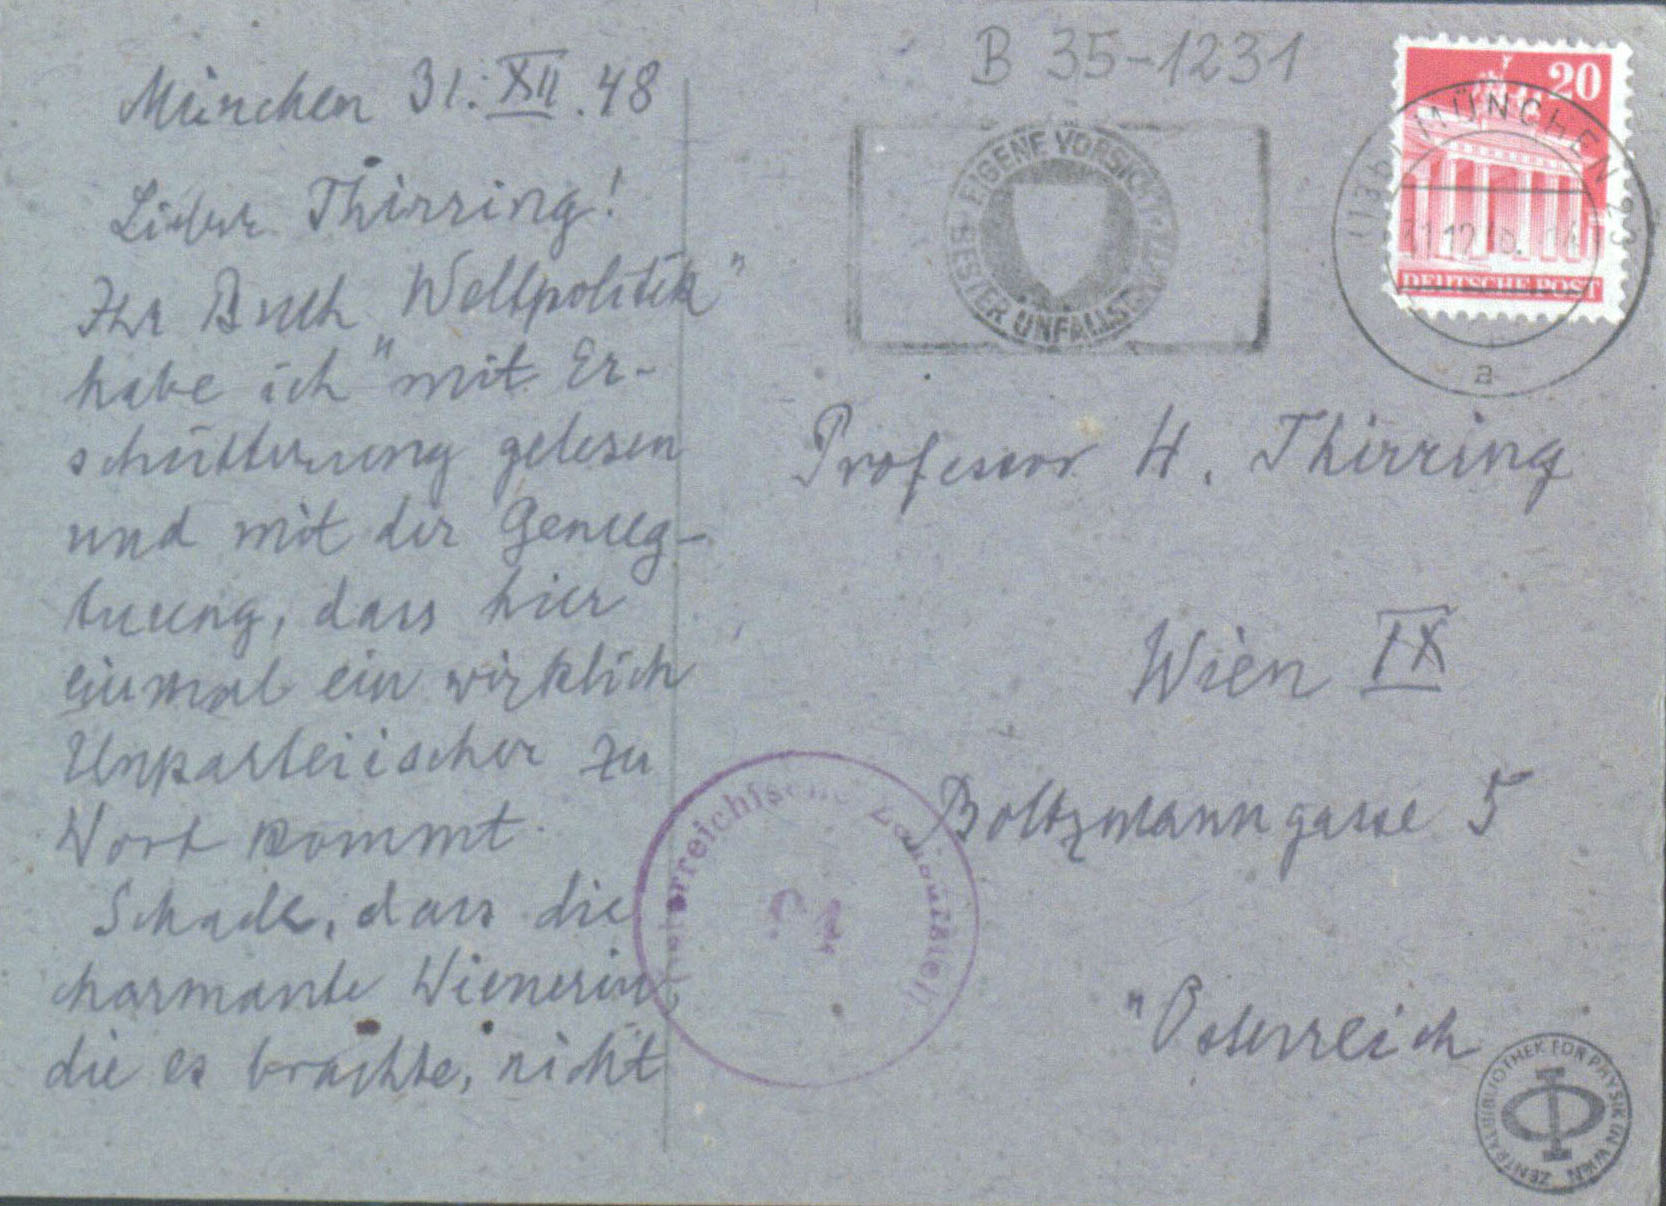 München 31. XII. 48
Lieber Thirring!
Ihr Buch „Weltpolitik"
habe ich mit Er-
schütterung gelesen
und mit der Genug-
tuung, dass hier
einmal ein wirklich
Unparteiischer zu
Wort kommt.
Schade, dass die
charmante Wienerin
die es brachte, nicht
B 35-1231
EIGENE VORSICHT
BESTER UNFALLSCHUTZ
20
DEUTSCHE POST
(13b) MÜNCHEN
a
Professor H. Thirring
Wien IX
Boltzmanngasse 5
Österreich
Österreichische Zensurstelle
ZENTRALBIBLIOTHEK FÜR PHYSIK IN WIEN